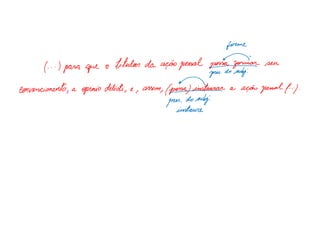 forme
(...) para que o titular da ação penal possa formar seu
pres. do subj.
convencimento, a opinio delicti, e, assim, (possa) instaurar a ação penal (...).
pres. do subj
instaure